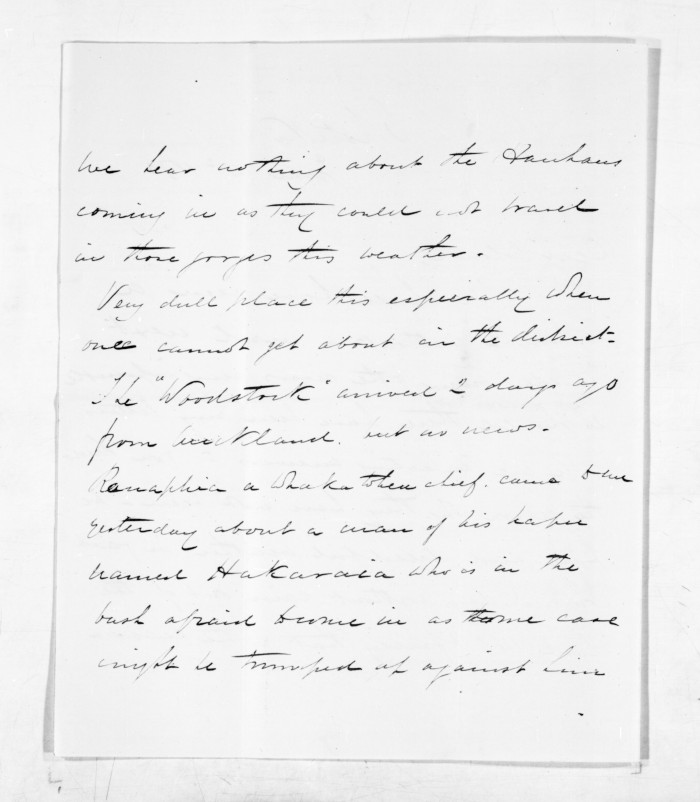 We hear nothing about the Hauhaus
coming in as they could not travel
in those gorges this weather.
Very dull place this especially when
one cannot get about in the district-
The "Woodstock" arrived 2 days ago
from Auckland. but no news-
a Whakatchea chief. came to me
yesterday about a man of his hapu
named Hakaraia who is in the
bush afraid to come in as some case
might be trumped up against him